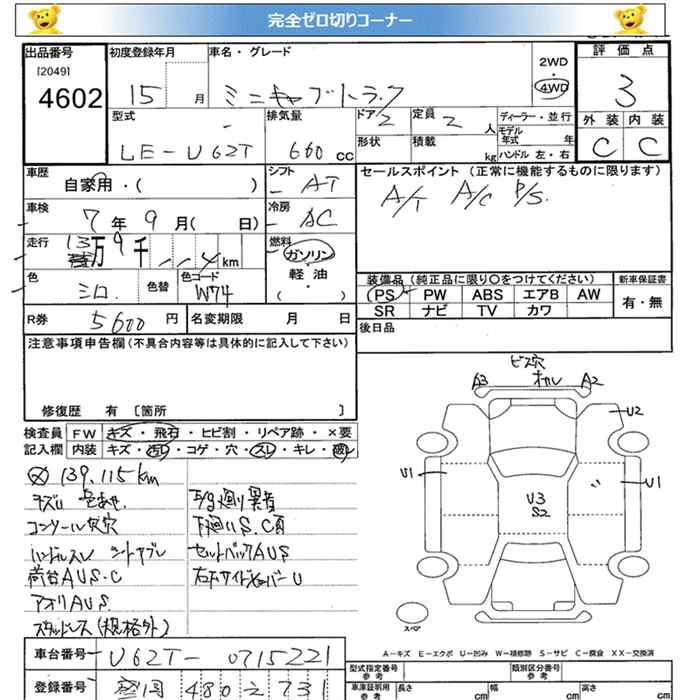 完全ゼロ切りコーナー
出品番号 初度登録年月 車名・グレード 評価点
[2049]
4602 15 月 ミニキャブトラック 2WD・4WD 3
型式 排気量 ドア 2 定員 2 人 ディーラー・並行 外装 内装
LE-U62T 660 cc 形状 積載 kg モデル年式 年 ハンドル 左・右 C C
車歴 シフト セールスポイント (正常に機能するものに限ります)
自家用・( ) AT A/T A/C P/S.
車検 7年 9月( 日) 冷房 AC
走行 13万9千 km 燃料 ガソリン・軽油・( )
色 シロ. 色替 色コード W74
装備品 (純正品に限り○をつけてください) 新車保証書
PS PW ABS エアB AW 有・無
SR ナビ TV カワ
R券 5600 円 名変期限 月 日 後日品
注意事項申告欄(不具合内容等は具体的に記入して下さい)
修復歴 有 [箇所 ]
検査員 FW キズ・飛石・ヒビ割・リペア跡・×要
記入欄 内装 キズ・汚レ・コゲ・穴・スレ・キレ・破レ
139,115km
キズU 色あせ.
コンソール欠穴 下廻りS.C有
ハンドルスレ シートヤブレ セットバックAUS
荷台AUS・C
アオリAUS.
スタッドレス(規格外)
ビス穴
A3 A2
U2
U1 U3 S2 U1
スペア
A-キズ E-エクボ U-凹み W-補修跡 S-サビ C-腐食 XX-交換済
車台番号 U62T-0715221
登録番号 480 2731
型式指定番号 参考 類別区分番号 参考
車庫証明用 参考 長さ cm 幅 cm 高さ cm